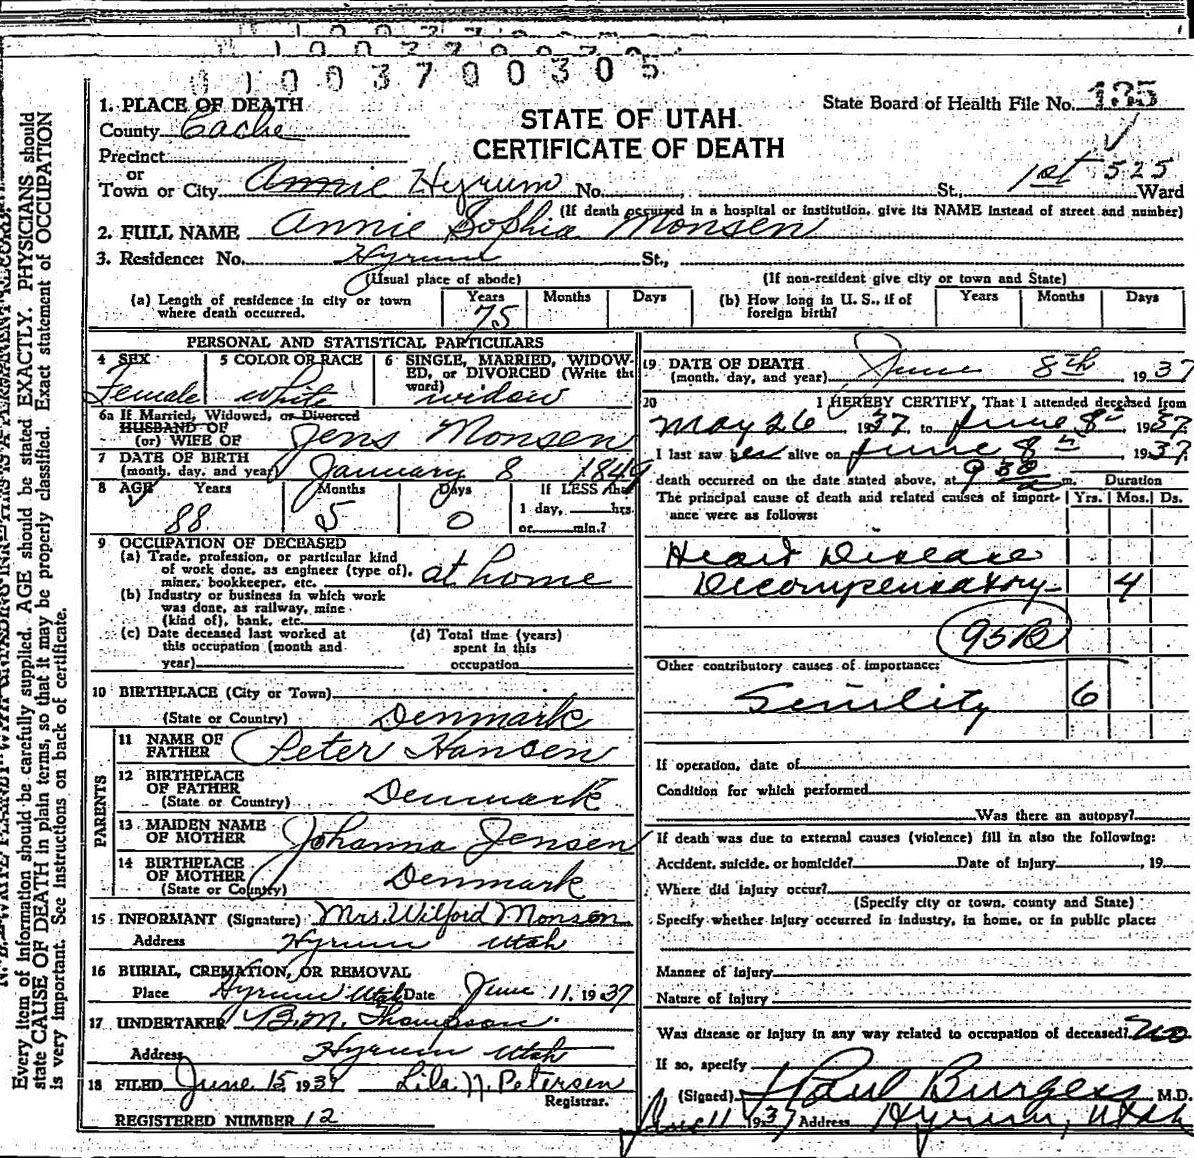 01003700305
1. PLACE OF DEATH
County Cache
STATE OF UTAH
CERTIFICATE OF DEATH
State Board of Health File No. 135
Precinct
or
Town or City Annie Hyrum No. St., 1st 525 Ward
(If death occurred in a hospital or institution, give its NAME instead of street and number)
2. FULL NAME Annie Sophia Monsen
3. Residence: No. Hyrum St.,
(Usual place of abode) (If non-resident give city or town and State)
(a) Length of residence in city or town where death occurred. Years 75 Months Days
(b) How long in U. S., if of foreign birth? Years Months Days
PERSONAL AND STATISTICAL PARTICULARS
4 SEX Female
5 COLOR OR RACE white
6 SINGLE, MARRIED, WIDOWED, or DIVORCED (Write the word) widow
6a If Married, Widowed, or Divorced
HUSBAND OF
(or) WIFE OF Jens Monsen
7 DATE OF BIRTH
(month, day, and year) January 8 1849
8 AGE Years 88 Months 5 Days 0 If LESS than 1 day, hrs. or min.?
9 OCCUPATION OF DECEASED
(a) Trade, profession, or particular kind
of work done, as engineer (type of),
miner, bookkeeper, etc. at home
(b) Industry or business in which work
was done, as railway, mine
(kind of), bank, etc.
(c) Date deceased last worked at
this occupation (month and
year)
(d) Total time (years)
spent in this
occupation
10 BIRTHPLACE (City or Town)
(State or Country) Denmark
PARENTS
11 NAME OF
FATHER Peter Hansen
12 BIRTHPLACE
OF FATHER
(State or Country) Denmark
13 MAIDEN NAME
OF MOTHER Johanna Jensen
14 BIRTHPLACE
OF MOTHER
(State or Country) Denmark
15 INFORMANT (Signature) Mrs. Wilford Monsen
Address Hyrum Utah
16 BURIAL, CREMATION, OR REMOVAL
Place Hyrum Utah Date June 11, 1937
17 UNDERTAKER B.M. Thompson
Address Hyrum Utah
18 FILED June 15 1937 Lila N. Petersen
Registrar.
REGISTERED NUMBER 12
19 DATE OF DEATH
(month, day, and year) June 8th 1937
20 I HEREBY CERTIFY, That I attended deceased from
May 26 1937 to June 8th 1937
I last saw her alive on June 8th 1937
death occurred on the date stated above, at 9 30 a m.
Duration
The principal cause of death and related causes of importance were as follows: Yrs. Mos. Ds.
Heart Disease
Decompensatory - 4
95B
Other contributory causes of importance:
Senility 6
If operation, date of
Condition for which performed
Was there an autopsy?
If death was due to external causes (violence) fill in also the following:
Accident, suicide, or homicide? Date of injury , 19
Where did injury occur?
(Specify city or town, county and State)
Specify whether injury occurred in industry, in home, or in public place:
Manner of injury
Nature of injury
Was disease or injury in any way related to occupation of deceased? no
If so, specify
(Signed) Paul Burgess M.D.
June 11 1937 Address Hyrum, Utah
Every item of information should be carefully supplied. AGE should be stated EXACTLY. PHYSICIANS should
state CAUSE OF DEATH in plain terms, so that it may be properly classified. Exact statement of OCCUPATION
is very important. See instructions on back of certificate.